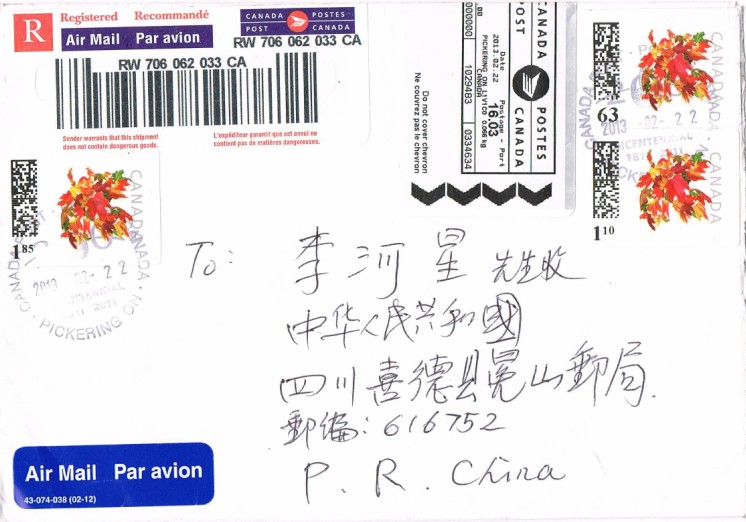 R
Registered Recommandé
Air Mail Par avion
CANADA POSTES
POST CANADA
RW 706 062 033 CA
RW 706 062 033 CA
Sender warrants that this shipment
does not contain dangerous goods.
L'expéditeur garantit que cet envoi ne
contient pas de matières dangereuses.
Do not cover chevron
Ne couvrez pas le chevron
.00
000000
1029483
0334634
Date
2013.02.22
Postage - Port
16.03
PICKERING ON L1V1C0 0.066 kg
CANADA
CANADA POSTES
POST CANADA
CANADA
63
2013 -02- 2 2
CANADA
1.10
CANADA
1.85
2013 02- 2 2
PICKERING ON
To: 李河星 先生收
中华人民共和國
四川喜德县冕山郵局.
郵编: 616752
P. R. China
Air Mail Par avion
43-074-038 (02-12)